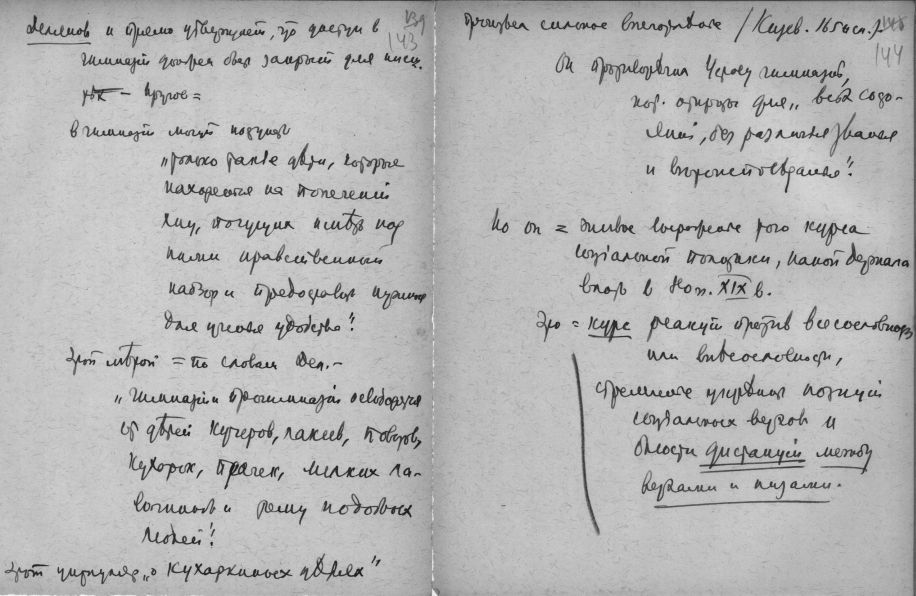 139
143
Делянов и прямо утверждает, что доступ в
гимназии должен быть закрыт для низш.
кругов =
в гимназии могут поступать
„только такие дѣти, которые
находятся на попеченiи
лиц, могущих имѣть над
ними нравственный
надзор и предоставить нужные
для ученья удобства".
Этой мѣрой = по словам Дел. –
„гимназiи и прогимназiи освободятся
от дѣтей кучеров, лакеев, поваров,
кухарок, прачек, мелких ла-
вочников и тому подобных
людей".
Этот циркуляр „о кухаркиных дѣтях"
144
произвел сильное впечатление /
Он противоречил Уставу гимназий,
кот. открыты для „всѣх сосло-
вий, без различия званья
и вѣроисповѣданья".
Но он = выражение того курса
соцiальной политики, какой держала
власть в кон. XIX в.
Это = курс реакции против всесословности
или внесословности,
стремленье укрѣпить позицiи
соцiальных верхов и
дистанцiй между
верхами и низами.